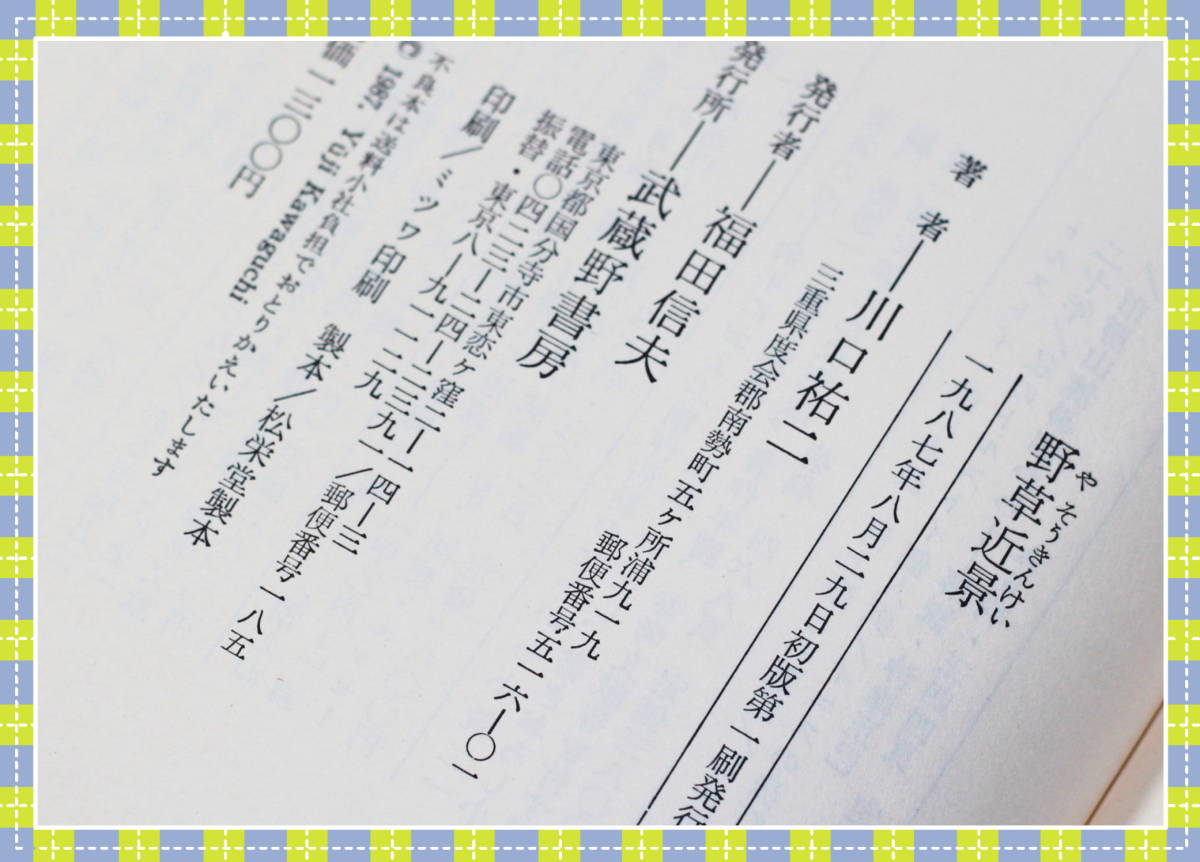 野草近景
やそうきんけい
一九八七年八月二九日初版第一刷発行
著者―川口祐二
三重県度会郡南勢町五ヶ所浦九一九
郵便番号五一六―〇一
発行者―福田信夫
発行所―武蔵野書房
東京都国分寺市東恋ヶ窪二―一四―三
電話〇四二三―二四―二三九一/郵便番号一八五
振替・東京八―九一一二九
印刷/ミツワ印刷
製本/松栄堂製本
不良本は送料小社負担でおとりかえいたします
© 1987. Yūji Kawaguchi
価一三〇〇円